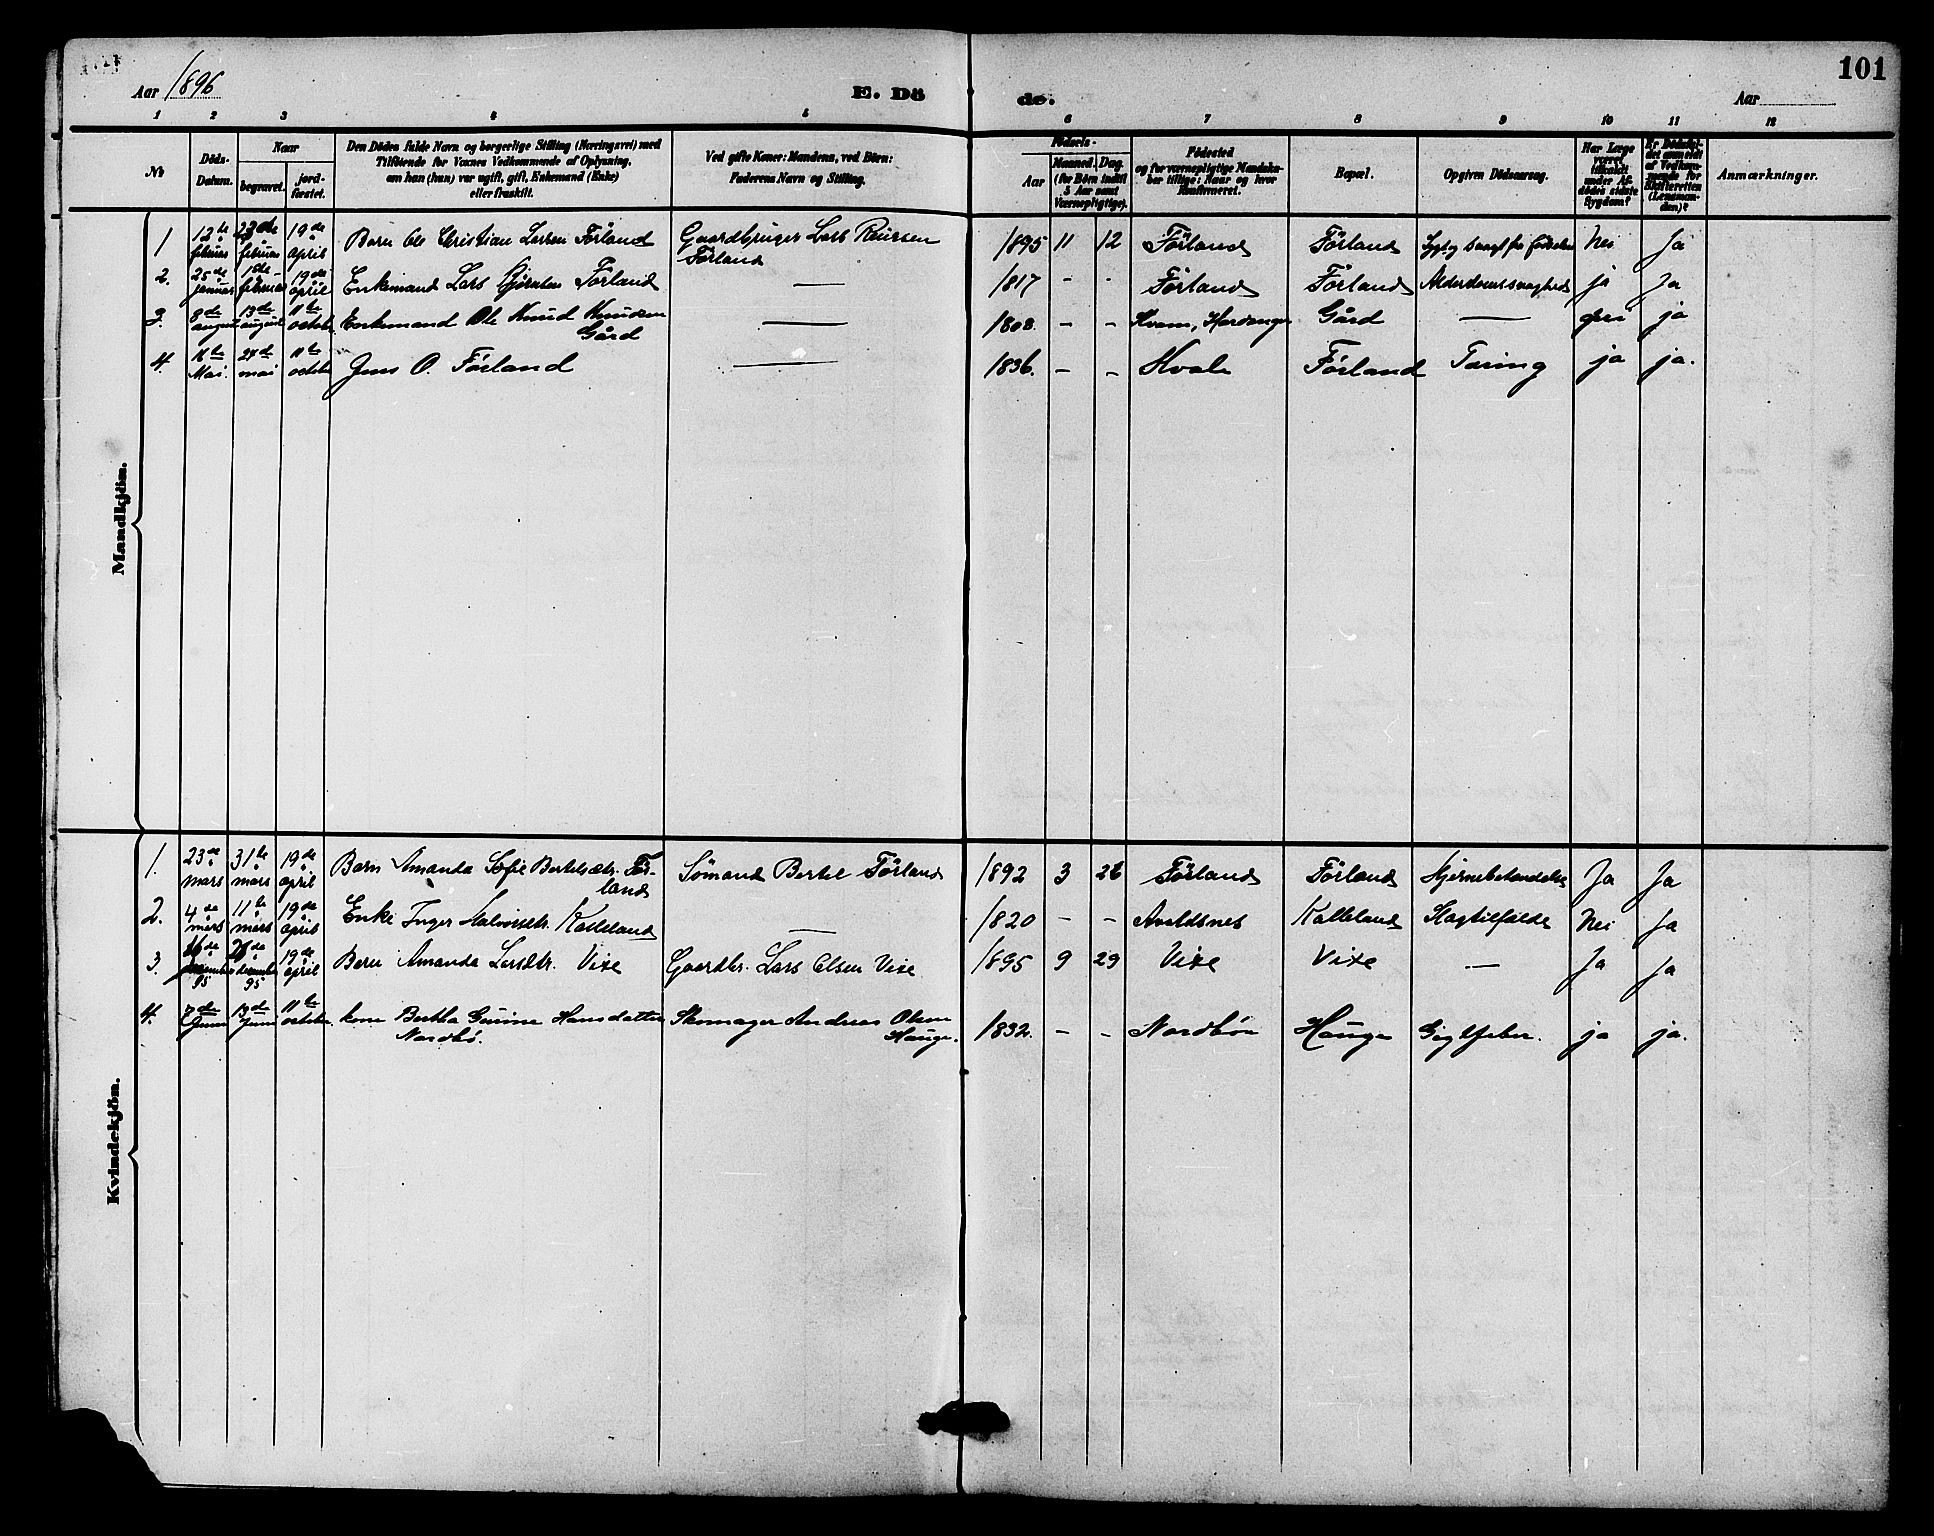 101
Aar 1896
E. Dö
de.
Aar
1 2 3 4 5 6 7 8 9 10 11 12
No
Döds-
Datum.
Naar
begravet.
jord-
fæstet.
Den Dödes fulde Navn og borgerlige Stilling (Næringsvei) med
Tilföiende for Voxnes Vedkommende af Oplysning,
om han (hun) var ugift, gift, Enkemand (Enke)
eller fraskilt.
Ved gifte Koner: Mandens, ved Börn:
Faderens Navn og Stilling.
Födsels-
Aar
Maaned. Dag.
(for Börn indtil
5 Aar samt
Værnepligtige).
Födested
og for værnepligtige Mandska-
ber tillige: Naar og hvor
konfirmeret.
Bopæl.
Opgiven Dödsaarsag.
Har Læge
været
tilkaldt
under Af-
dödes sidste
Sygdom?
Er Dödsfal-
det anmeldt
af Vedkom-
mende for
Skifteretten
(Lensman-
den)?
Anmærkninger.
Mandkjön.
1 12te februar februar 19de april Barn Ole Christian Larsen Förland Gaardbruger Lars
Förland
1895 11 12 Förland Förland Nei Ja
2. 25de januar 1ste februar 19de april Enkemand Lars Förland — 1817 - - Förland Förland Alderdomssvaghed ja Ja
3. 8de august 13de august 11te octob Enkemand Ole Knud Knudsen
Gård
— 1808. - - Kvam, Hardanger Gård — ja
4. 16te Mai. 27de mai 11te octob Jens O. Förland — 1836. - - Hvale Förland Tæring ja ja.
Kvindekjön.
1. 23de mars 31te mars 19de april Barn Amanda Sofie Bertelsdtr. För-
land
Sömand Bertel Förland 1892 3 26 Förland Förland Hjernebetændelse Ja Ja
2. 4de mars 11te mars 19de april Enke Inger Halvorsdtr. Kalleland — 1820 - - Avaldsnes Kalleland Slagtilfælde Nei Ja
3. 16de december 95 december 95 19de april Barn Amanda Larsdtr. Vixe Gaardbr. Lars Olsen Vixe 1895 9 29 Vixe Vixe — Ja Ja
4. 7de Juni 13de Juni 11te octob. kone Bertha Gurine Hansdatter
Nordbö.
Skomager Andreas Olsen
Hauge.
1832. - - Nordböe Hauge Gigtfeber. ja ja.